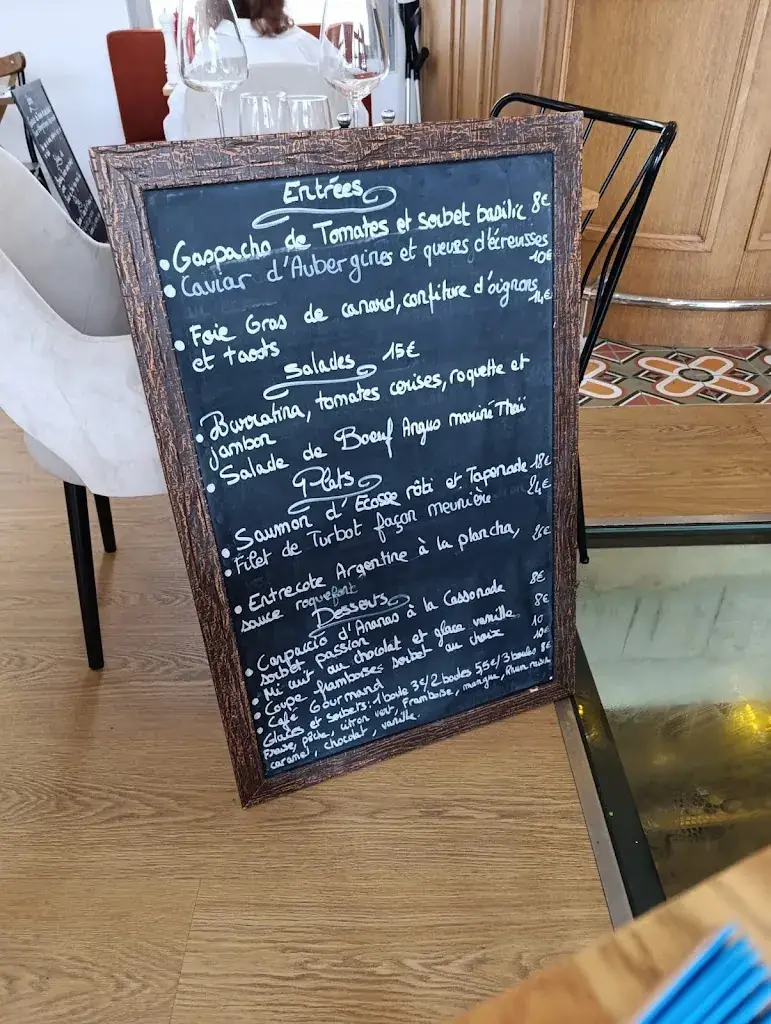 Entrées
• Gaspacho de Tomates et sorbet basilic 8€
• Caviar d'Aubergines et queues d'écrevisses
10€
• Foie Gras de canard, confiture d'oignons
et toasts 14€
Salades 15€
• Burratina, tomates cerises, roquette et
jambon
• Salade de Boeuf Angus mariné Thaï
Plats
• Saumon d'Ecosse rôti et Tapenade 18€
• Filet de Turbot façon meunière 24€
• Entrecote Argentine à la plancha,
sauce roquefort
Desserts
• Carpaccio d'Ananas à la Cassonade 8€
sorbet passion
• Mi cuit au chocolat et glace vanille 8€
• Coupe framboises sorbet au choix 10
• Café Gourmand 10€
• Glaces et Sorbets: 1 boule 3€/2 boules 5,5€/3 boules 8€
Fraise, pêche, citron vert, Framboise, mangue, Rhum raisin
caramel, chocolat, vanille